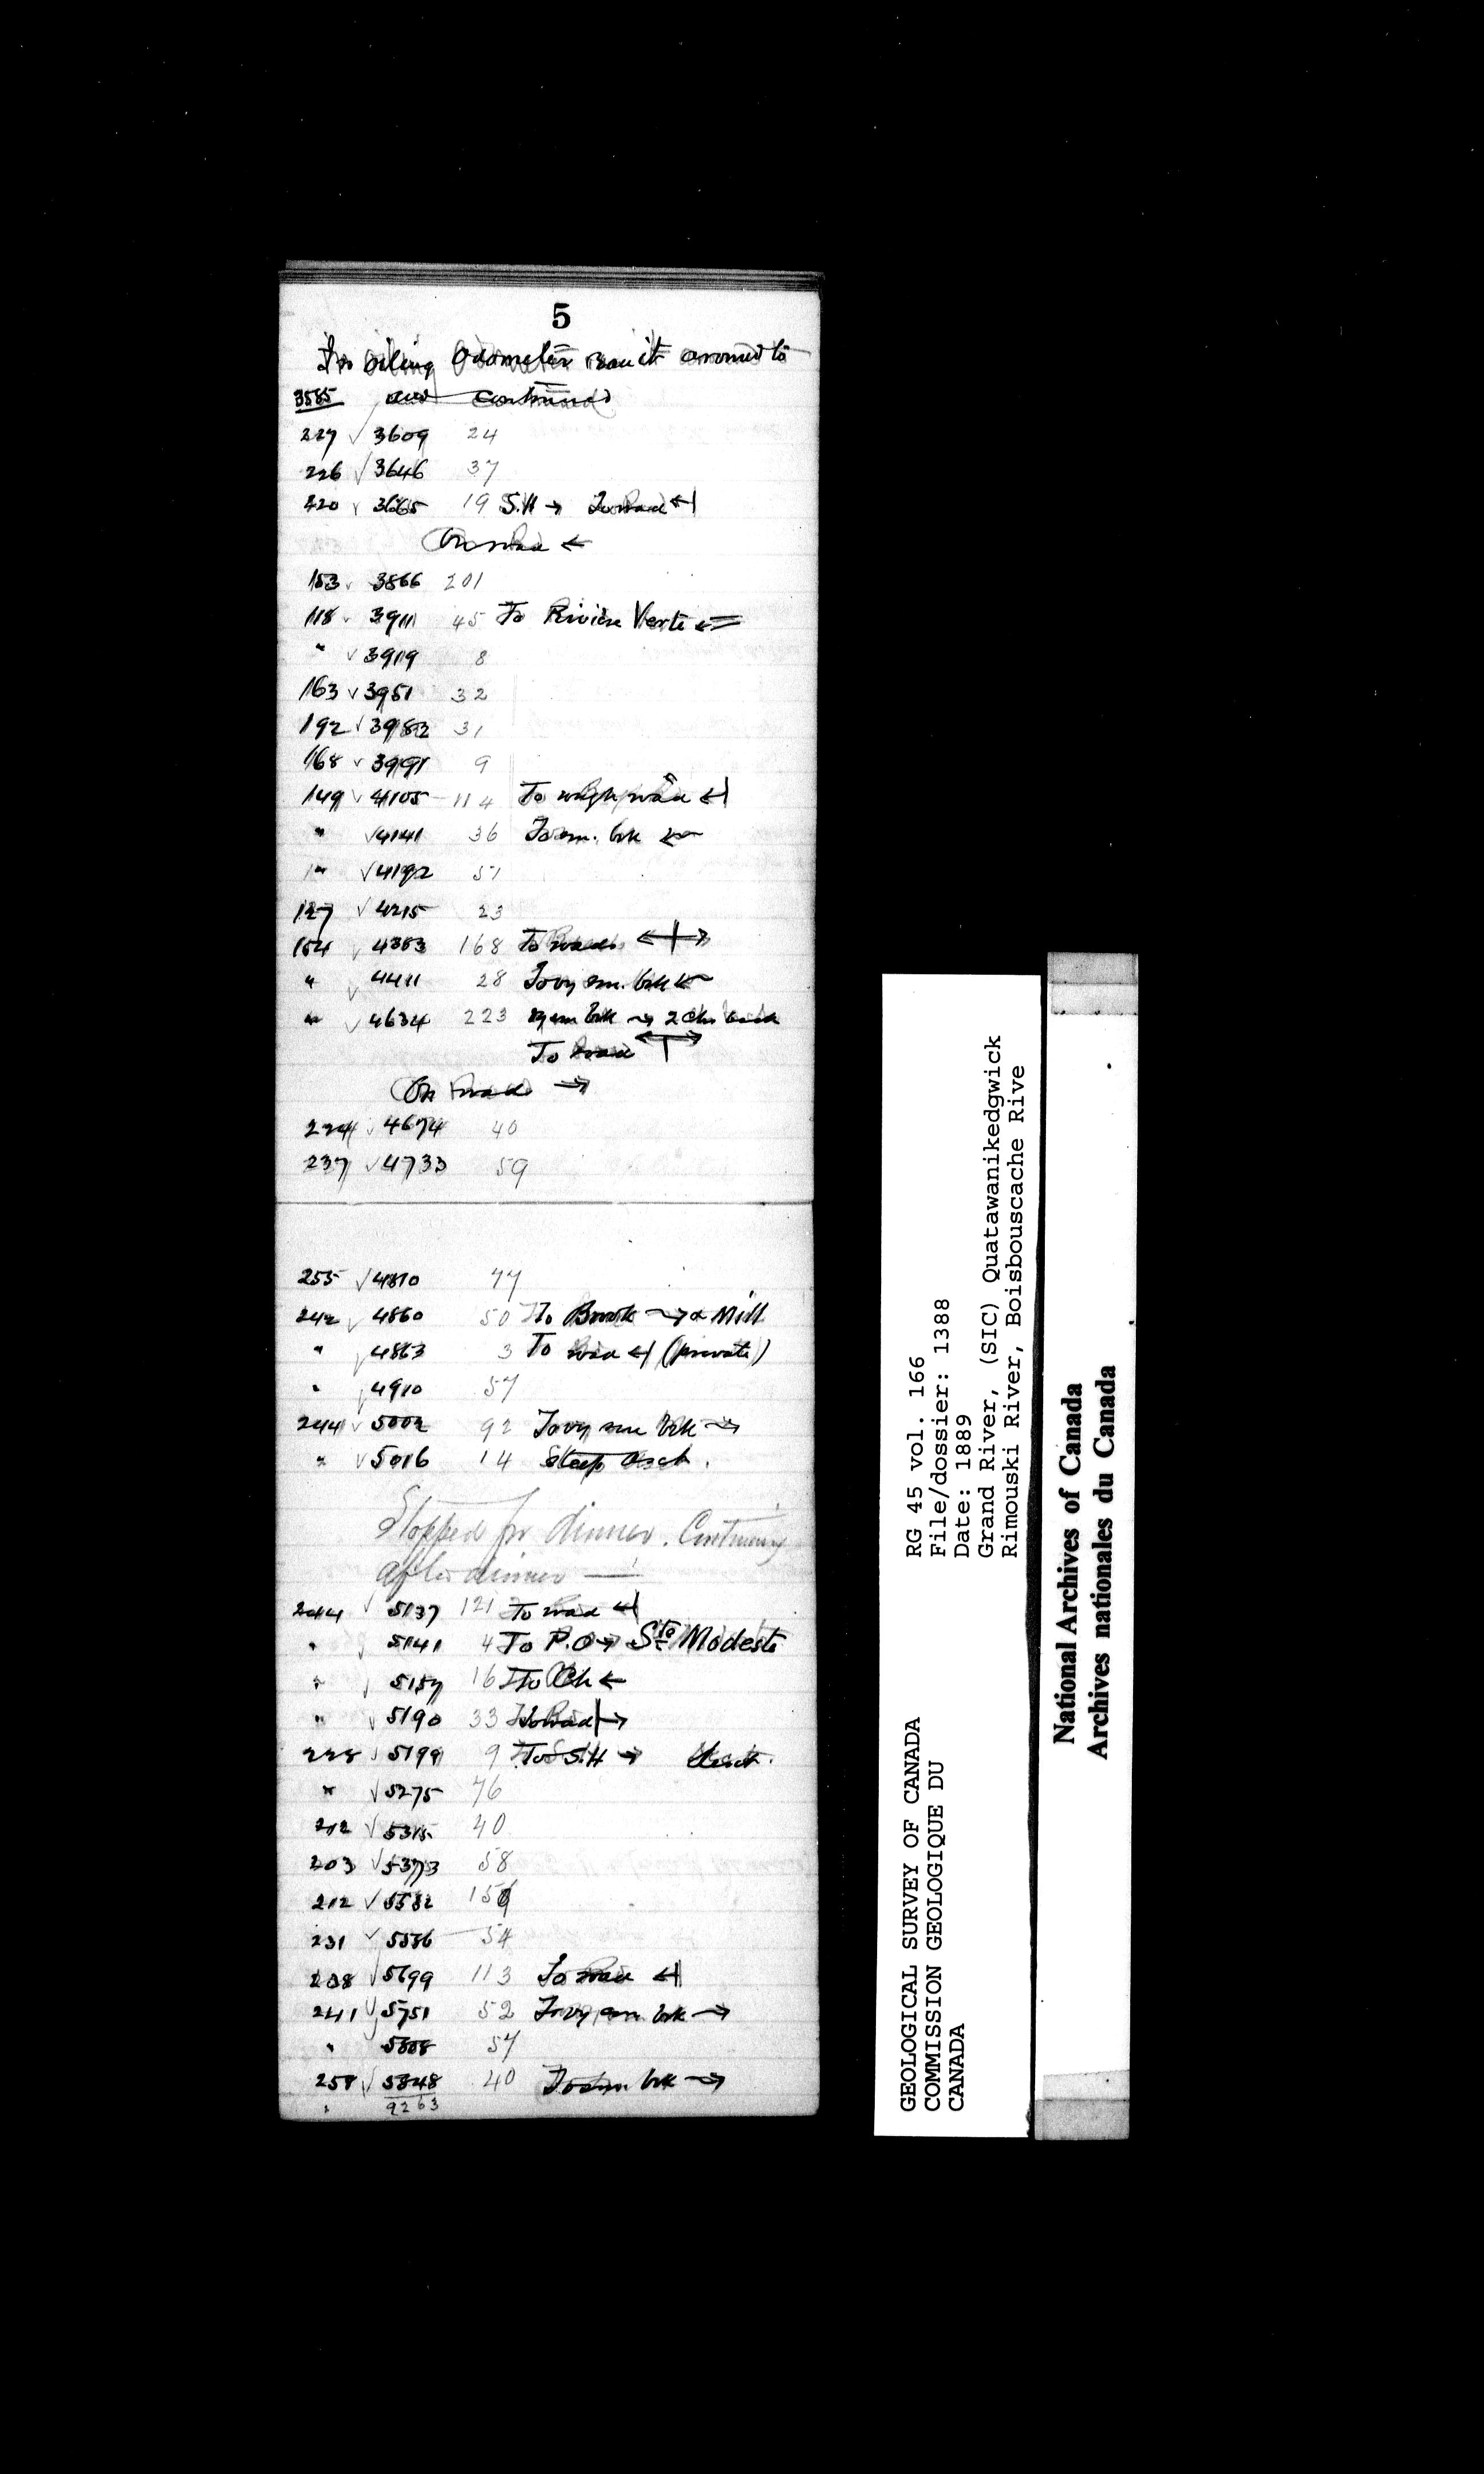 5
In oiling Odometer ran it around to
3585 and continued
227 √ 3609 24
226 √ 3646 37
220 √ 3665 19 S.H → To road ←|
On road ←
153 √ 3866 201
118 √ 3911 45 To Rivière Verte ←
" √ 3919 8
163 √ 3951 32
192 √ 3982 31
168 √ 3991 9
149 √ 4105 114 To road ←|
" √ 4141 36 To sm. brk ←
" √ 4192 51
127 √ 4215 23
154 √ 4383 168 To roads ←|→
" √ 4411 28 To vy sm. brk ←
" √ 4634 223 vy sm brk → 2 chs back
To road ←T→
On Road →
224 √ 4674 40
237 √ 4733 59
255 √ 4810 77
242 √ 4860 50 To Brook → & Mill
" √ 4863 3 To road ←| (private)
" √ 4910 57
244 √ 5002 92 To vy sm brk →
" √ 5016 14 Steep Asct.
Stopped for dinner. Continuing
after dinner —
244 √ 5137 121 To road ←|
" √ 5141 4 To P.O → Ste Modeste
" √ 5157 16 To Ch ←
" √ 5190 33 To Road |→
228 √ 5199 9 To S.H →
" √ 5275 76
212 √ 5315 40
203 √ 5373 58
212 √ 5532 159
231 √ 5586 54
238 √ 5699 113 To road ←|
241 √ 5751 52 To vy sm brk →
" 5808 57
258 √ 5848 40 To sm. brk →
" 9263
GEOLOGICAL SURVEY OF CANADA
COMMISSION GEOLOGIQUE DU
CANADA
RG 45 vol. 166
File/dossier: 1388
Date: 1889
Grand River, (SIC) Quatawanikedgwick
Rimouski River, Boisbouscache Rive
National Archives of Canada
Archives nationales du Canada